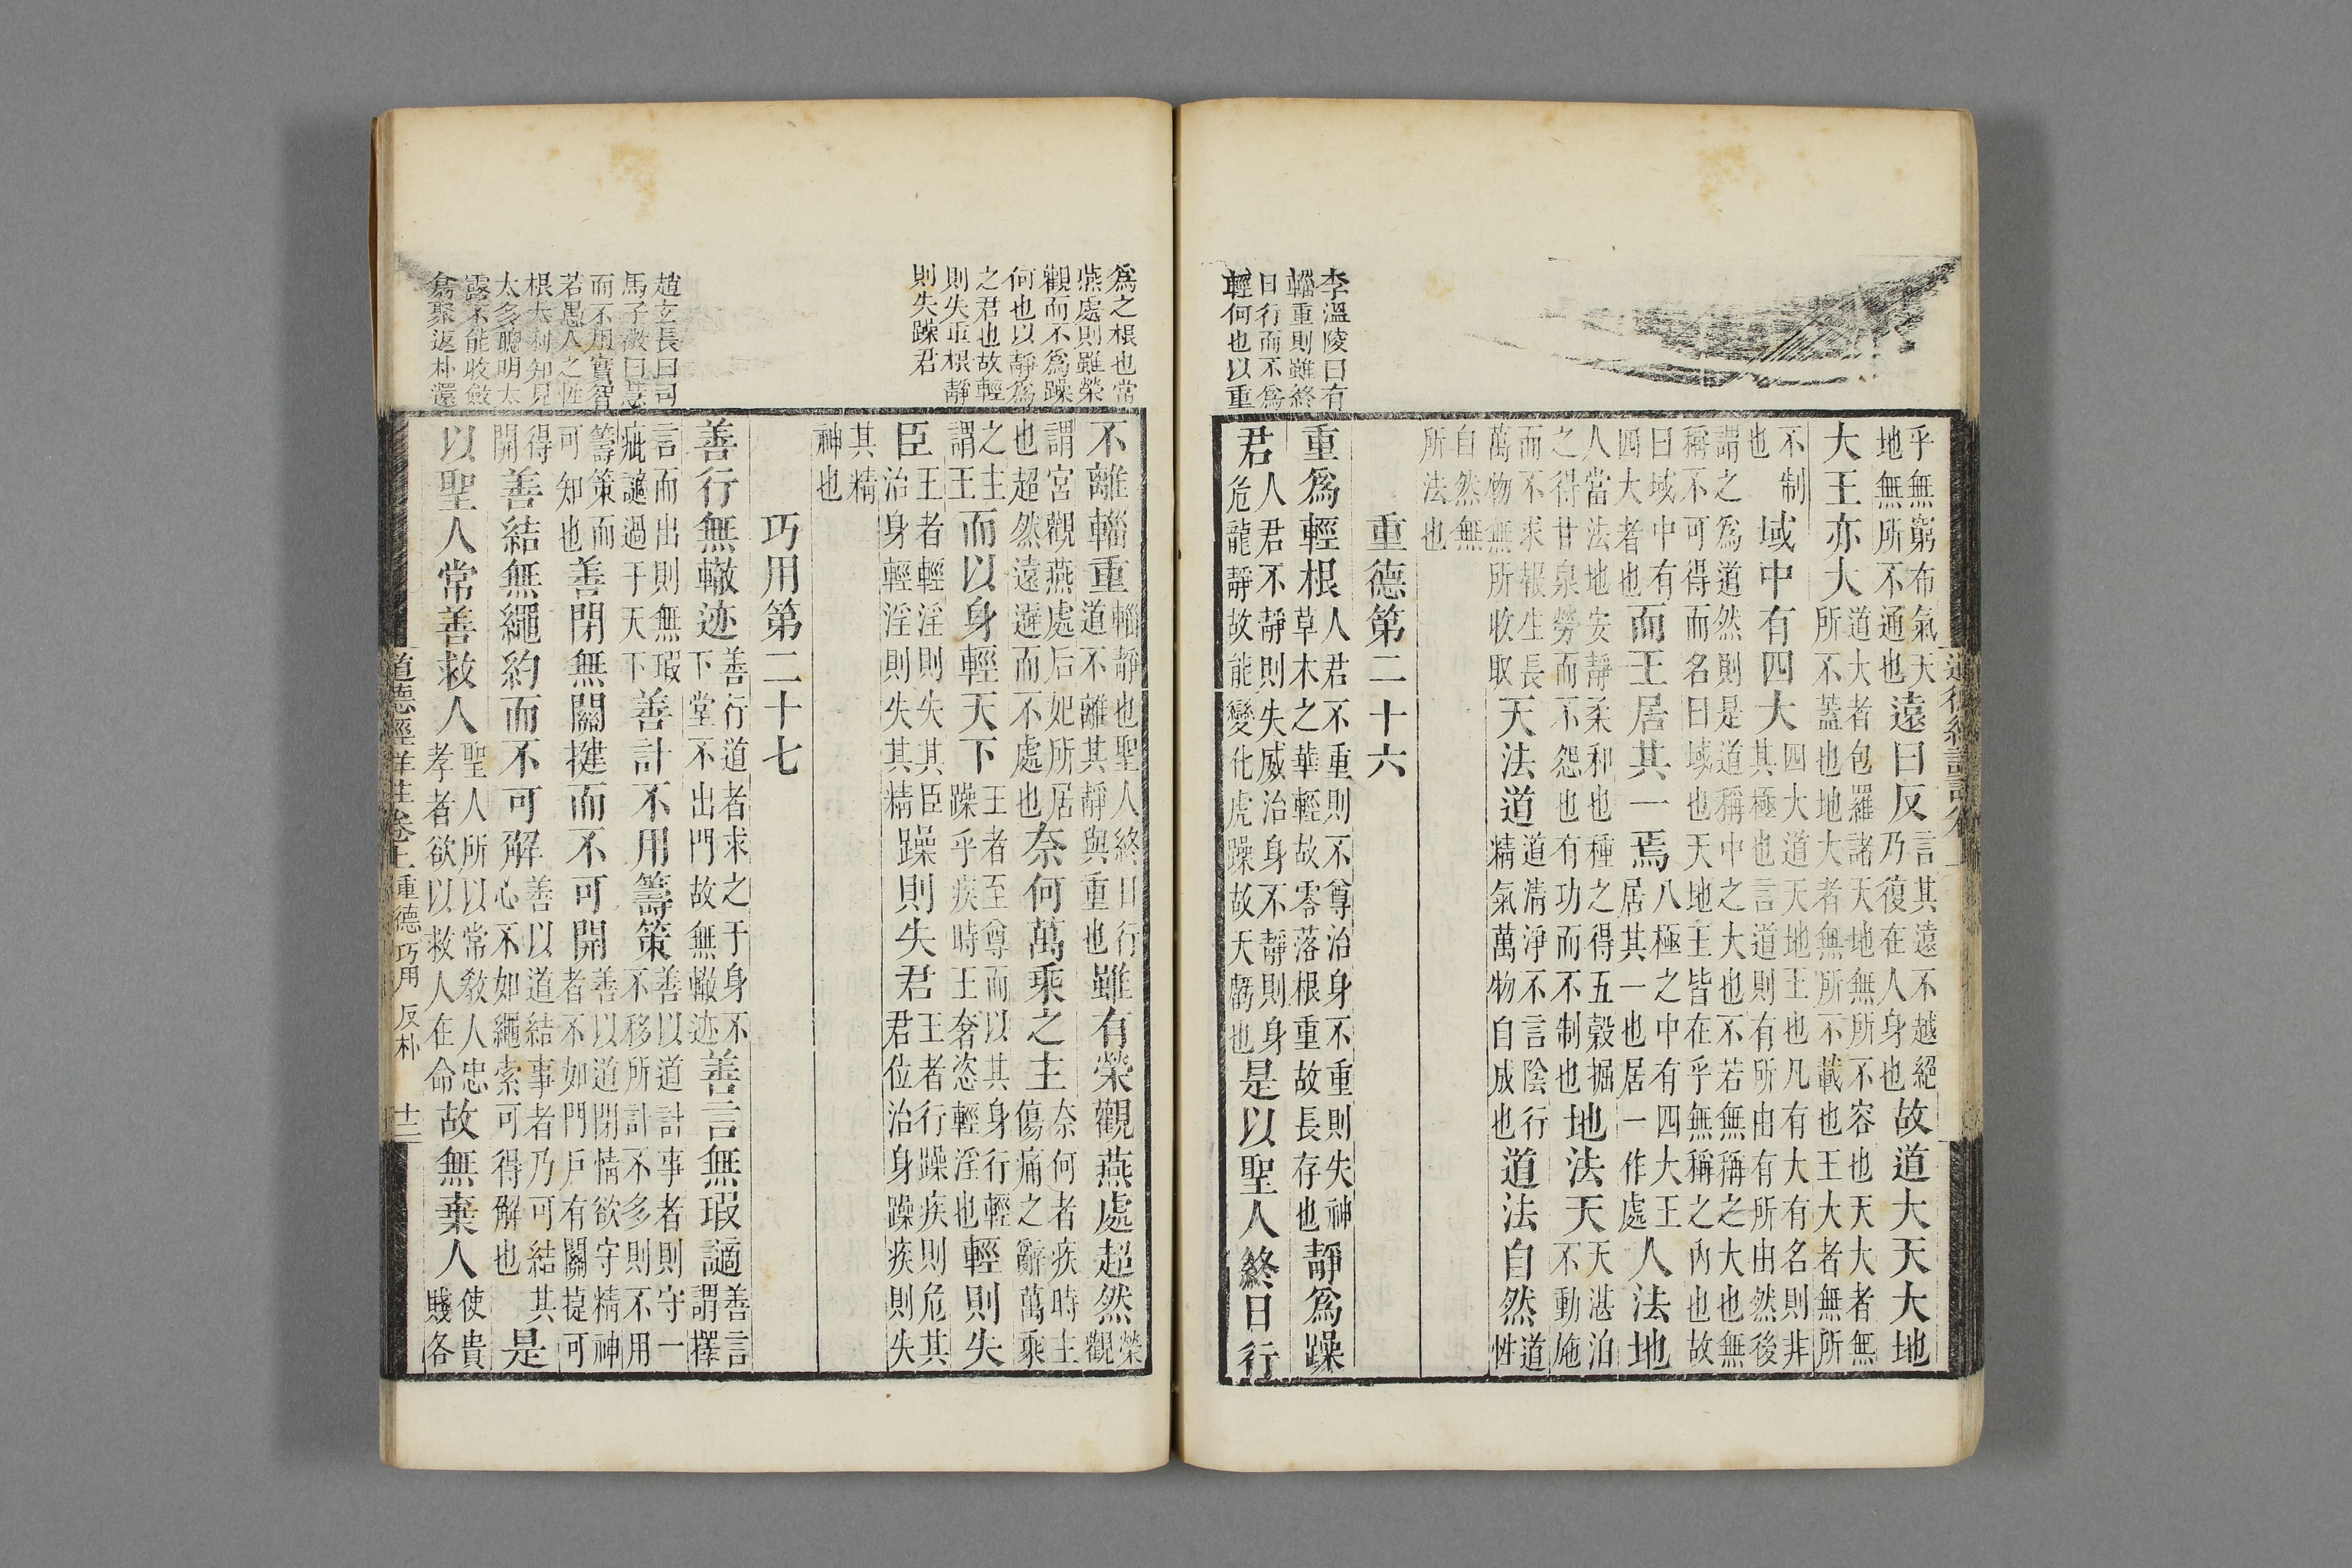 李溫陵曰有
輜重則雖終
日行而不爲
輕何也以重
乎無窮布氣天地無所不通也遠曰反言其遠不越絕乃復在人身也故道大天大地
大王亦大道大者包羅諸天地無所不容也天大者無所不蓋也地大者無所不載也王大者無所
不制也域中有四大四大道天地王也凡有大有名則非其極也言道則有所由有所由然後
謂之爲道然則是道稱中之大也不若無稱之大也無稱不可得而名曰域也天地王皆在乎無稱之內也故
曰域中有四大者也而王居其一焉八極之中有四大王居其一也居一作處人法地
人當法地安靜柔和也種之得五穀掘之得甘泉勞而不怨也有功而不制也地法天天湛泊不動施
而不求報生長萬物無所收取天法道道清淨不言陰行精氣萬物自成也道法自然道性
自然無所法也
重德第二十六
重爲輕根人君不重則不尊治身不重則失神草木之華輕故零落根重故長存也靜爲躁
君人君不靜則失威治身不靜則身危龍靜故能變化虎躁故夭虧也是以聖人終日行
爲之根也當
燕處則雖榮
觀而不爲躁
何也以靜爲
之君也故輕
則失重根靜
則失躁君
趙玄長曰司
馬子微曰慧
而不用實智
若愚人之性
根太利知見
太多聰明太
露不能收斂
翕聚返朴還
不離輜重輜靜也聖人終日行道不離其靜與重也雖有榮觀燕處超然榮觀
謂宮觀燕處后妃所居也超然遠避而不處也奈何萬乘之主奈何者疾時主傷痛之辭萬乘
之主謂王而以身輕天下王者至尊而以其身行輕躁乎疾時王奢恣輕淫也輕則失
臣王者輕淫則失其臣治身輕淫則失其精躁則失君王者行躁疾則危其君位治身躁疾則失
其精神也
巧用第二十七
善行無轍迹善行道者求之于身不下堂不出門故無轍迹善言無瑕謫善言謂擇
言而出則無瑕疵謫過于天下善計不用籌策善以道計事者則守一不移所計不多則不用
籌策而可知也善閉無關揵而不可開善以道閉情欲守精神者不如門戶有關揵可
得開善結無繩約而不可解善以道結事者乃可結其心不如繩索可得解也是
以聖人常善救人聖人所以常敎人忠孝者欲以救人在命故無棄人使貴賤各
道德經評註卷上 重德 巧用 反朴 十二